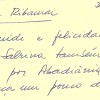 Ribamar
e felicidad
Sabrina também
por Abadiâni
um pouco d